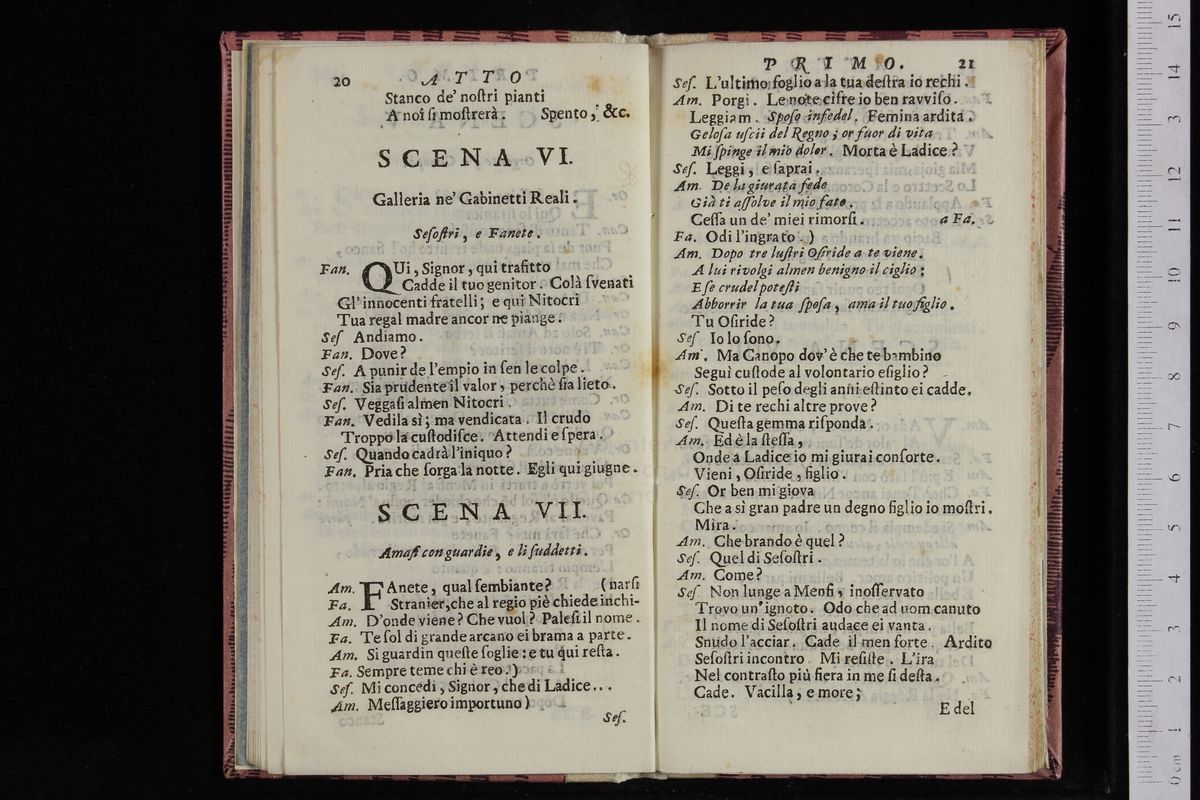 20 ATTO
Stanco de' noſtri pianti
A noi ſi moſtrerà. Spento, &c.
SCENA VI.
Galleria ne' Gabinetti Reali.
Seſoſtri, e Fanete.
Fan. QUi, Signor, qui trafitto
Cadde il tuo genitor. Colà ſvenati
Gl' innocenti fratelli; e qui Nitocri
Tua regal madre ancor ne piange.
Seſ Andiamo.
Fan. Dove?
Seſ. A punir de l'empio in ſen le colpe.
Fan. Sia prudente il valor, perchè ſia lieto.
Seſ. Veggaſi almen Nitocri.
Fan. Vedila sì; ma vendicata. Il crudo
Troppo la cuſtodiſce. Attendi e ſpera.
Seſ. Quando cadrà l'iniquo?
Fan. Pria che ſorga la notte. Egli qui giugne.
SCENA VII.
Amaſi con guardie, e li ſuddetti.
Am. FAnete, qual ſembiante? (narſi
Fa. Stranier, che al regio piè chiede inchi-
Am. D'onde viene? Che vuol? Paleſi il nome.
Fa. Te ſol di grande arcano ei brama a parte.
Am. Si guardin queſte ſoglie: e tu qui reſta.
Fa. Sempre teme chi è reo.)
Seſ. Mi concedi, Signor, che di Ladice...
Am. Meſſaggiero importuno)
Seſ.
PRIMO. 21
Seſ. L'ultimo foglio a la tua deſtra io rechi.
Am. Porgi. Le note cifre io ben ravviſo.
Leggiam. Spoſo infedel. Femina ardita.
Geloſa uſcii del Regno; or fuor di vita
Mi ſpinge il mio dolor. Morta è Ladice?
Seſ. Leggi, e ſaprai.
Am. De la giurata fede
Già ti aſſolve il mio fato.
Ceſſa un de' miei rimorſi. a Fa.
Fa. Odi l'ingrato.)
Am. Dopo tre luſtri Oſiride a te viene.
A lui rivolgi almen benigno il ciglio:
E ſe crudel poteſti
Abborrir la tua ſpoſa, ama il tuo figlio.
Tu Oſiride?
Seſ Io lo ſono.
Am. Ma Canopo dov' è che te bambino
Seguì cuſtode al volontario eſiglio?
Seſ. Sotto il peſo degli anni eſtinto ei cadde.
Am. Di te rechi altre prove?
Seſ. Queſta gemma riſponda.
Am. Ed è la ſteſſa,
Onde a Ladice io mi giurai conſorte.
Vieni, Oſiride, figlio.
Seſ. Or ben mi giova
Che a sì gran padre un degno figlio io moſtri.
Mira.
Am. Che brando è quel?
Seſ. Quel di Seſoſtri.
Am. Come?
Seſ. Non lunge a Menfi, inoſſervato
Trovo un' ignoto. Odo che ad uom canuto
Il nome di Seſoſtri audace ei vanta.
Snudo l'acciar. Cade il men forte. Ardito
Seſoſtri incontro. Mi reſiſte. L'ira
Nel contraſto più fiera in me ſi deſta.
Cade. Vacilla, e more;
E del
0 cm 1 2 3 4 5 6 7 8 9 10 11 12 13 14 15